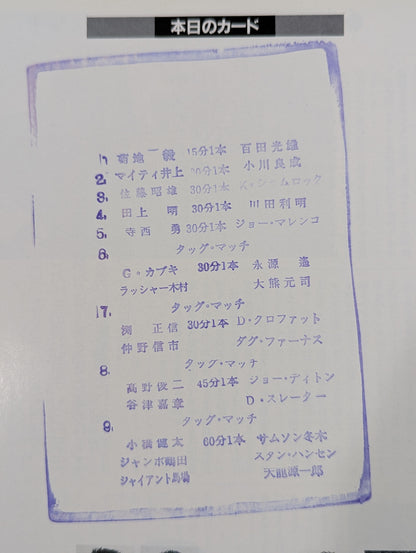 本日のカード
1, 菊地 毅 15分1本 百田光雄
2. マイティ井上 30分1本 小川良成
3. 佐藤昭雄 30分1本 K・シャムロック
4. 田上 明 30分1本 川田利明
5. 寺西 勇 30分1本 ジョー・マレンコ
6. タッグ・マッチ
G・カブキ 30分1本 永源 遙
ラッシャー木村 大熊元司
7. タッグ・マッチ
渕 正信 30分1本 D・クロファット
仲野信市 ダグ・ファーナス
8. タッグ・マッチ
高野俊二 45分1本 ジョー・ディトン
谷津嘉章 D・スレーター
9. タッグ・マッチ
小橋健太 60分1本 サムソン冬木
ジャンボ鶴田 スタン・ハンセン
ジャイアント馬場 天龍源一郎